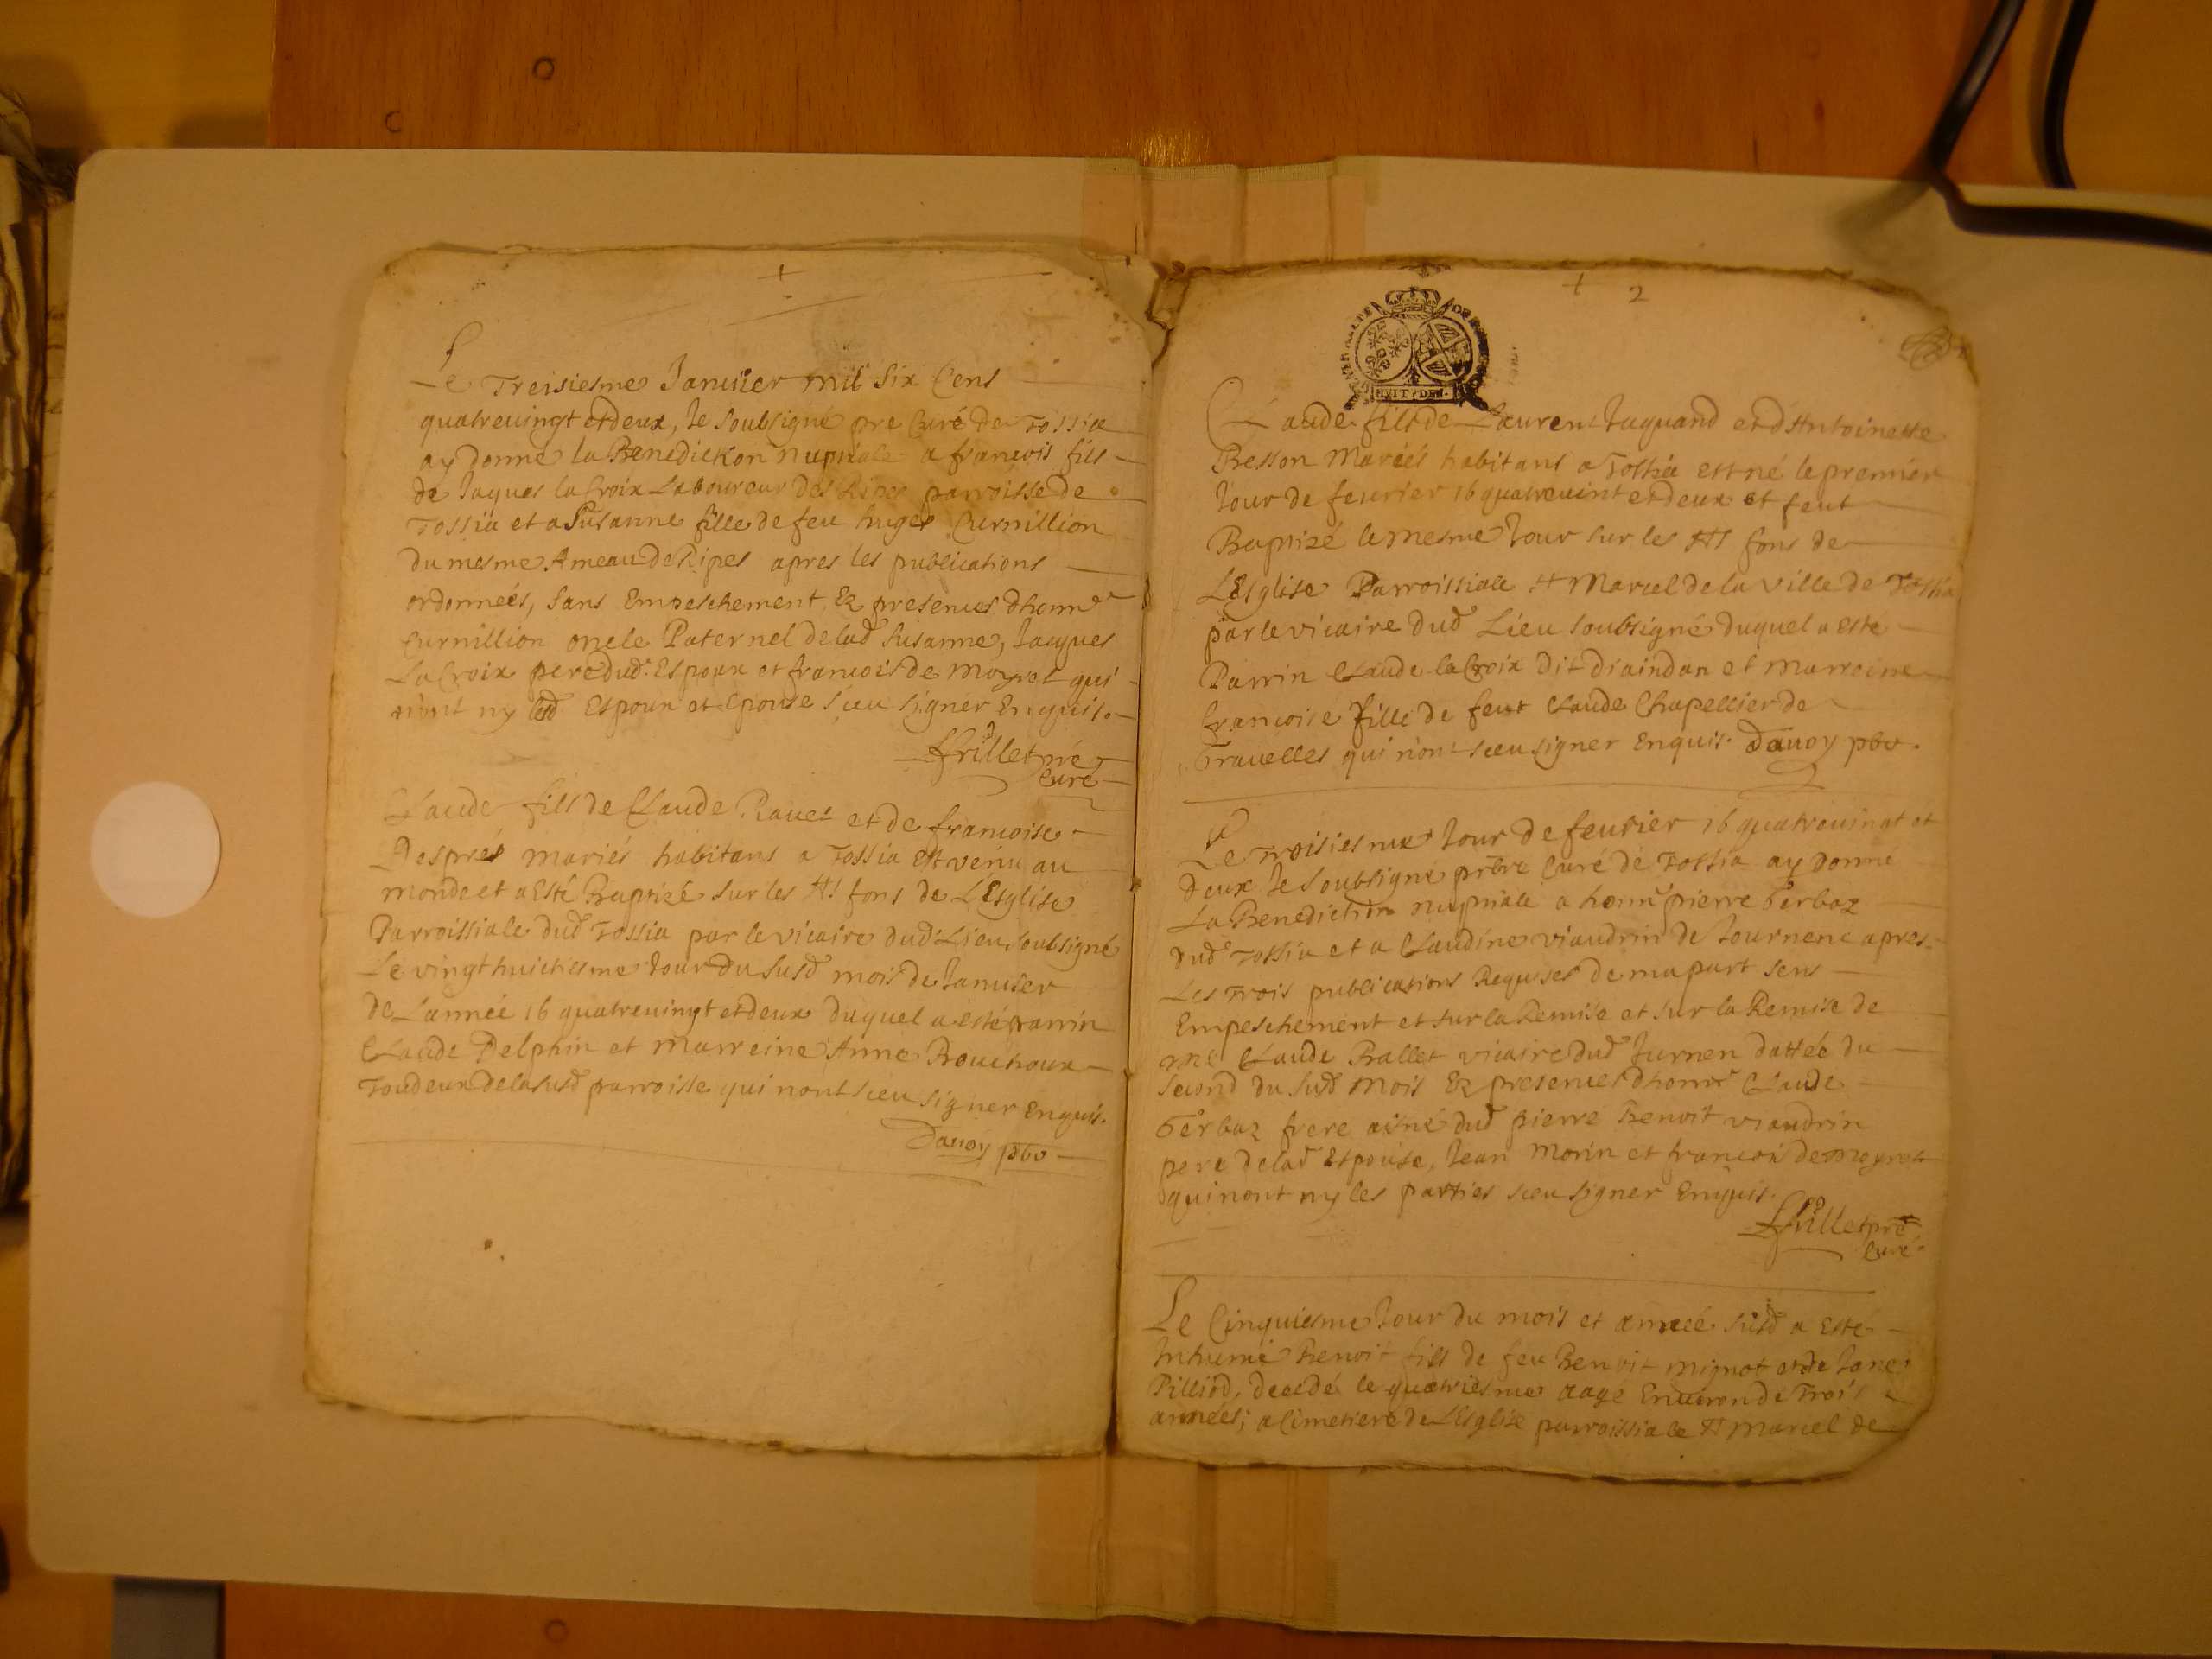 Le Treisiesme Januier mil six Cens
quatreuingt et deux, Je soubsigné pre Curé de Tossia
ay donné la Benediction nuptiale a francois fils
de Jaques la Croix Laboureur des Ripes parroisse de
Tossia et a Susanne fille de feu huges Curnillion
du mesme Ameau de Ripes apres les publications
ordonneés, sans Empeschement, Ez presences dhonn
Curnillion oncle Paternel delad Susanne, Jacques
LaCroix pere dud. Espoux et francois de moyret qui
nont ny lesd Espoux et Epouse sceu signer Enquis.
Frillet pre
Curé
Claude fils de Claude Rauet et de francoise
Després mariés habitans a Tossia est venu au
monde et a Esté Baptizé sur les Sts fons de L'Esglise
Parroissiale dud Tossia par le vicaire dud Lieu soubsigné
Le vingt huictiesme Jour du susd mois de Januier
de L'année 16 quatreuingt et deux duquel a esté parrin
Claude Delphin et marreine Anne Brouchoux
Tondeux de la susd parroisse qui nont sceu signer Enquis.
Dauoy pbr
+ 2
HUIT DEN.
Claude fils de Laurent Jaquand et d'Antoinette
Besson Mariés habitans a Tossia est né le premier
Jour de feurier 16 quatreuint et deux et feut
Baptizé le mesme Jour sur les Sts fons de
L'Esglise Parroissiale St Marcel de la ville de Tossia
par le vicaire dud Lieu soubsigné duquel a esté
Parrin Claude la Croix dit draindan et Marreine
francoise fille de feut Claude Chapellier de
Trauelles qui n'ont sceu signer Enquis. Dauoy pbr.
Le Troisiesme Jour de feurier 16 quatreuingt et
deux Je soubsigné prbre Curé de Tossia ay donné
La Benediction nuptiale a honn pierre Gerbaz
dud Tossia et a Claudine viaudrin de Journenc apres
Les Trois publications Requises de ma part sens
Empeschement et sur la Remise et sur la Remise de
me Claude Ballet vicaire dud Jurnen dattée du
second du susd Mois Ez presences dhonn Claude
Gerbaz frere aisné dud pierre Benoit viaudrin
pere delad Espouse, Jean Morin et francois demoyret
qui nont ny les parties sceu signer Enquis.
Frillet pre
Curé
Le Cinquiesme Jour du mois et anneé susd a Esté
Inhumé Benoit fils de feu Benoit mignot et de Jane
Pilliod, decedé le quatriesme aagé Enuiron de Trois
années; a Cimetiere de L'Esglise parroissiale St Marcel de